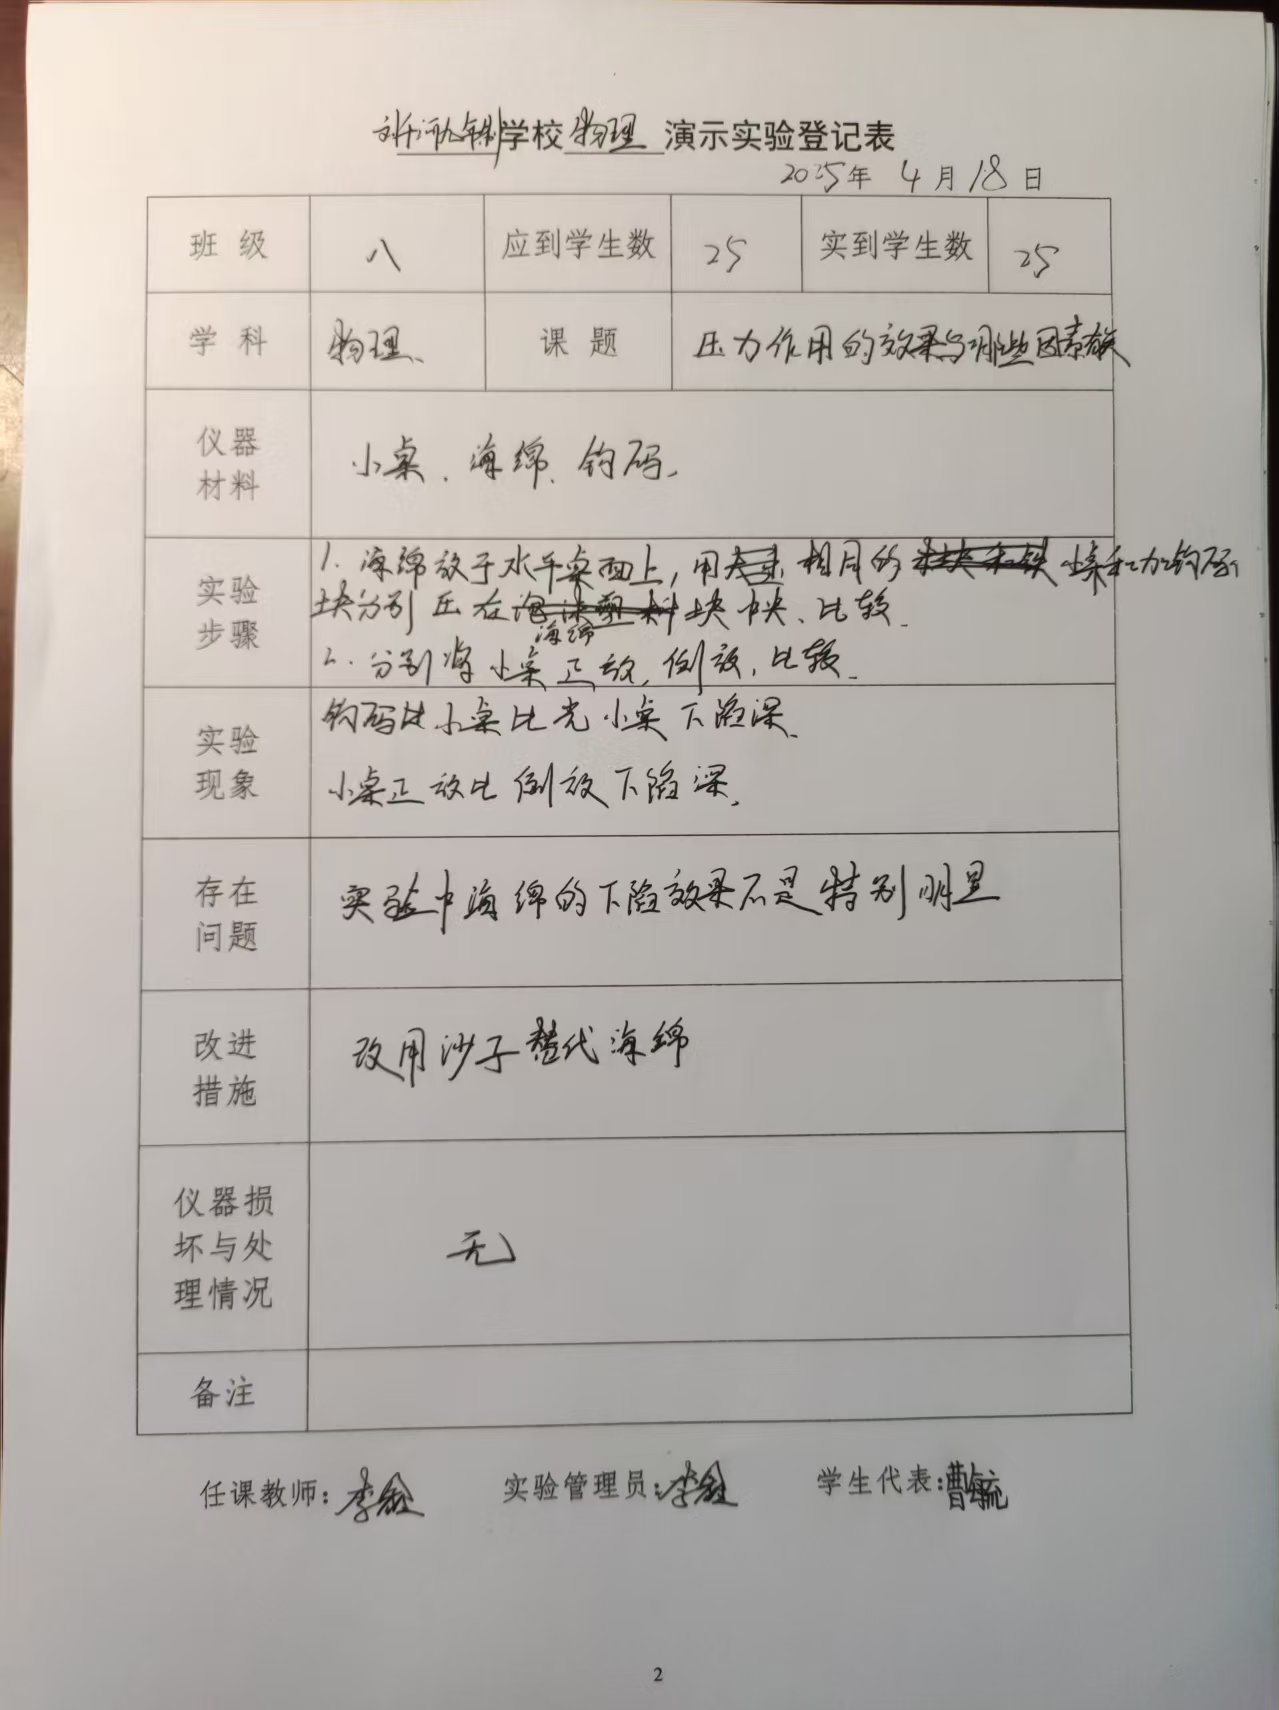 学校物理演示实验登记表
2025年4月18日
班级 八 应到学生数 25 实到学生数 25
学科 物理、 课题 压力作用的效果与哪些因素有关
仪器材料 小桌、海绵、钩码.
实验步骤 1. 海绵放于水平桌面上，用 相同的 小桌和加钩码
块分别压在 海绵 块中央、比较.
2. 分别将小桌正放，倒放，比较.
实验现象 钩码比小桌比光小桌下陷深、
小桌正放比倒放下陷深.
存在问题 实验中海绵的下陷效果不是特别明显
改进措施 改用沙子替代海绵
仪器损坏与处理情况 无
备注
任课教师： 实验管理员： 学生代表：曹毓
2